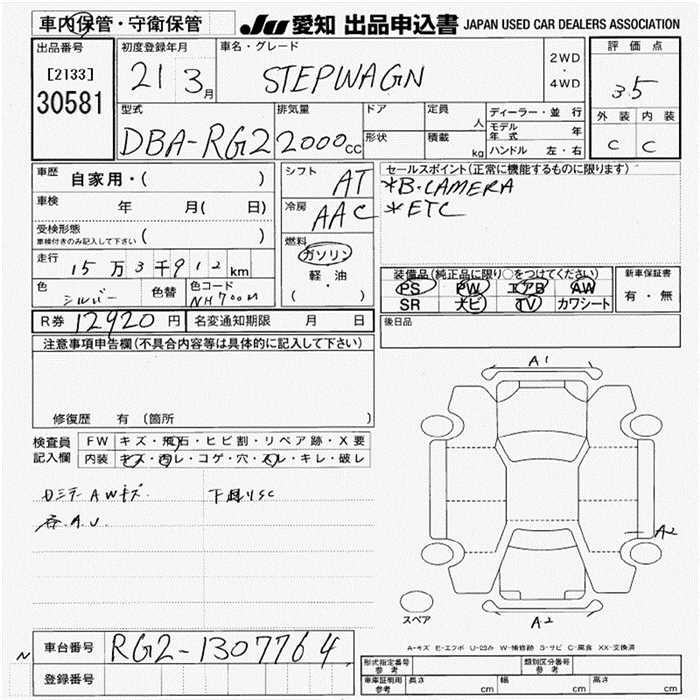 車内保管・守衛保管
JU 愛知 出品申込書 JAPAN USED CAR DEALERS ASSOCIATION
出品番号
[2133]
30581
初度登録年月
21 3月
車名・グレード
STEPWAGN
2WD
・
4WD
評価点
3.5
外装 内装
C C
型式
DBA-RG2
排気量
2000cc
ドア
形状
定員
人
積載
kg
ディーラー・並行
モデル年式 年
ハンドル 左・右
車歴
自家用・( )
車検 年 月( 日)
受検形態
車検付きのみ記入して下さい ( )
走行
15万3千912km
色 シルバー 色替
色コード NH700M
シフト AT
冷房 AAC
燃料
ガソリン
軽・油
( )
セールスポイント(正常に機能するものに限ります)
*B.CAMERA
*ETC
装備品(純正品に限り○をつけてください)
PS PW エアB AW
SR ナビ TV カワシート
新車保証書
有・無
R券 12920円 名変通知期限 月 日
後日品
注意事項申告欄(不具合内容等は具体的に記入して下さい)
修復歴 有 (箇所 )
検査員記入欄
FW キズ・飛石・ヒビ割・リペア跡・X要
内装 キズ・凹レ・コゲ・穴・スレ・キレ・破レ
AWキズ
A.U.
A1
A2
A2
スペア
A-キズ E-エクボ U-凹み W-補修跡 S-サビ C-腐食 XX-交換済
車台番号 RG2-1307764
N
登録番号
形式指定番号 参考
類別区分番号 参考
車庫証明用 参考 長さ cm 幅 cm 高さ cm